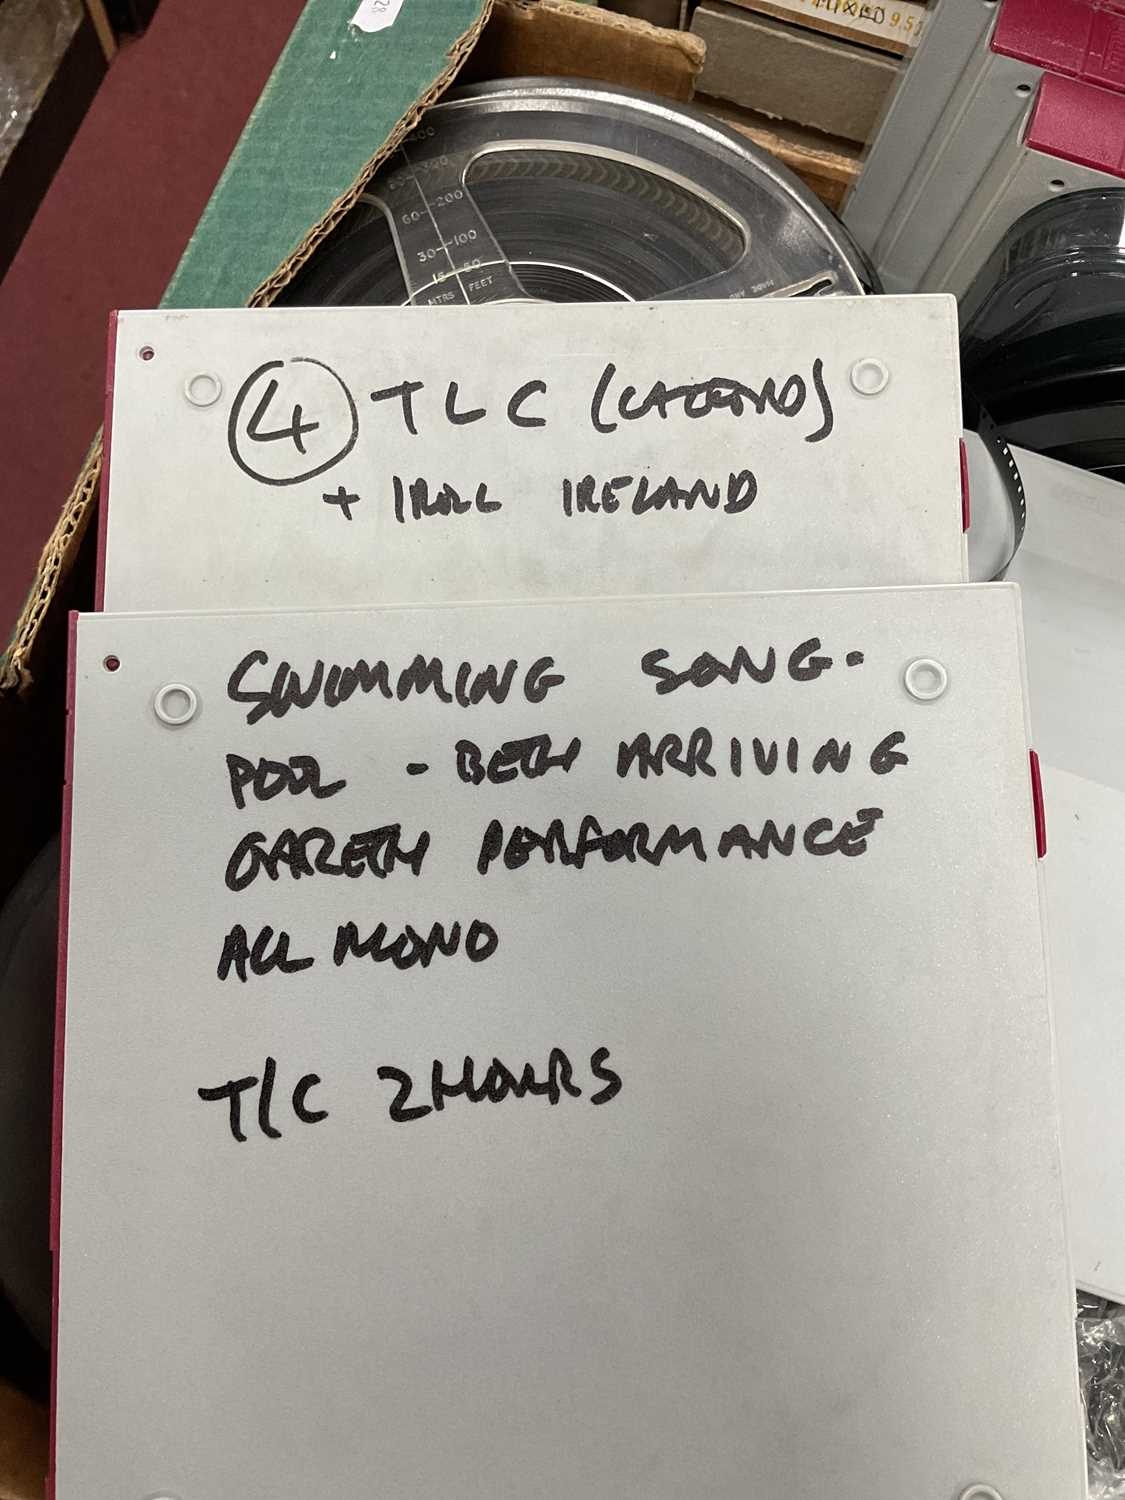 28
MIXED 9.5
400
300
60 200
30 100
15 50
MTRS FEET
MADE
4 TLC
+ 1ROLL IRELAND
SWIMMING SONG.
POOL - BETH ARRIVING
GARETH PERFORMANCE
ALL MONO
T/C 2 HOURS